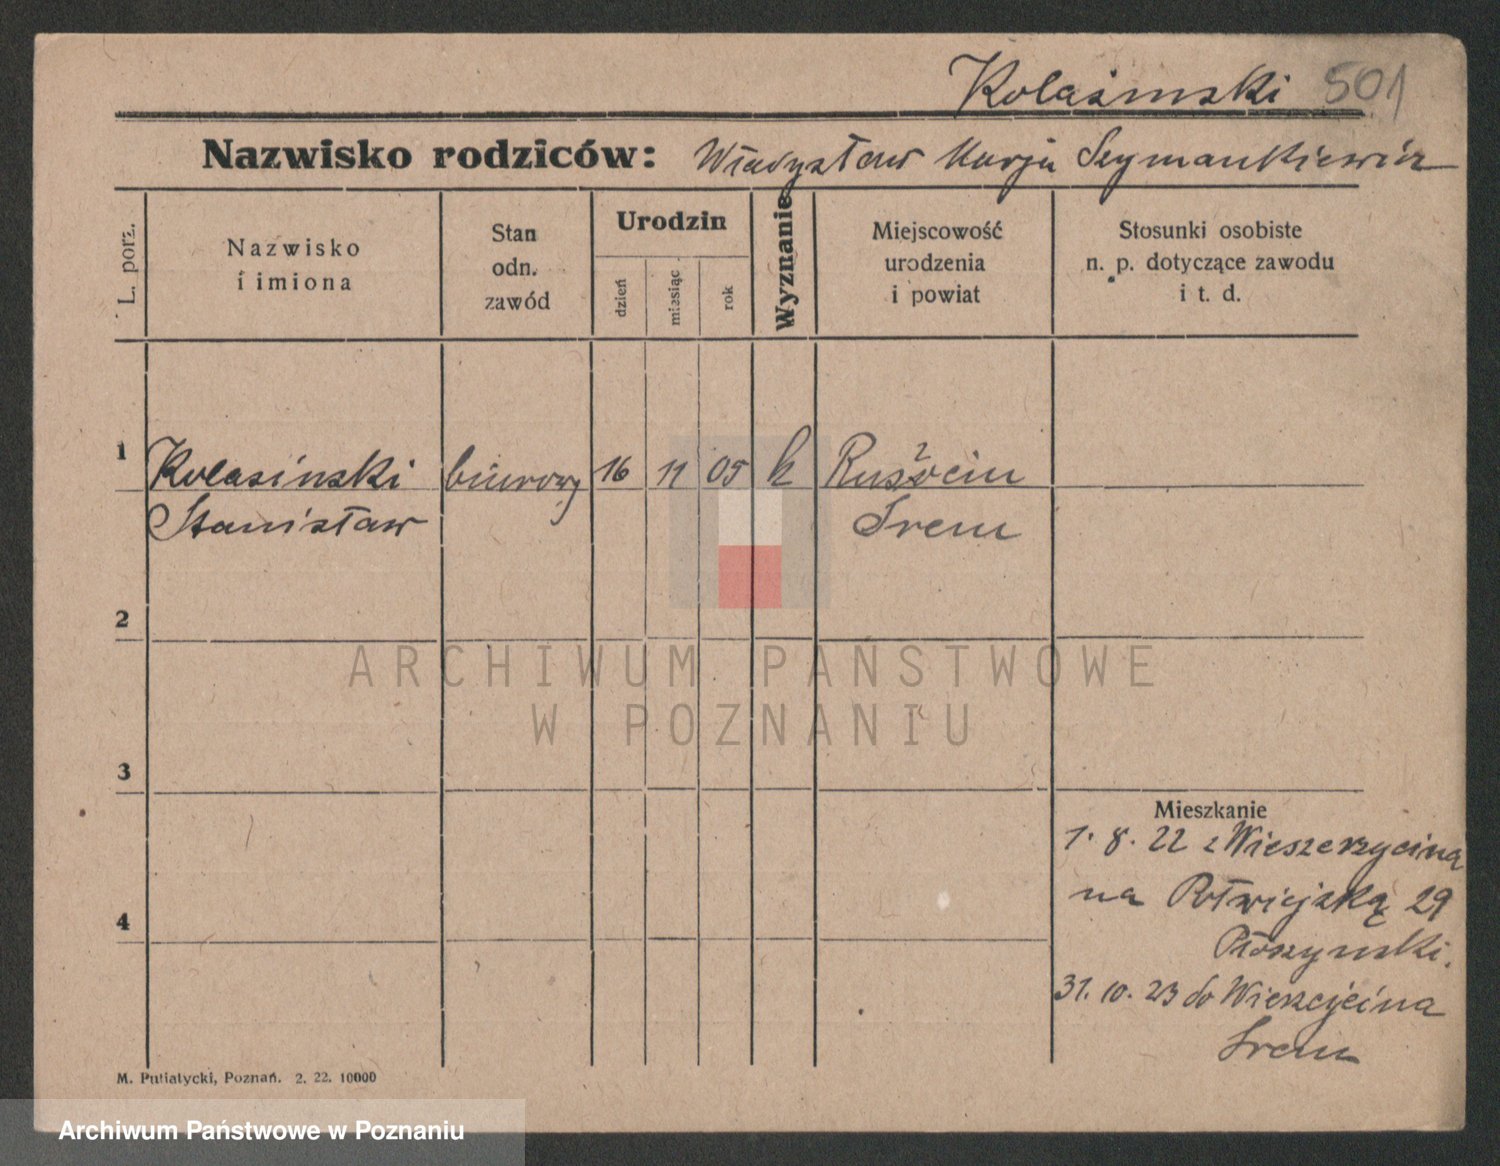 Kolasinski 501
Nazwisko rodziców: Władysław Marja Szymankiewicz
L. porz.
Nazwisko
i imiona
Stan
odn.
zawód
Urodzin
dzień
miesiąc
rok
Wyznanie
Miejscowość
urodzenia
i powiat
Stosunki osobiste
n. p. dotyczące zawodu
i t. d.
1 Kolasinski biurowy 16 11 05 k
Stanisław Śrem
2
3
4
Mieszkanie
1. 8. 22 z
na 29
31. 10. 23 do
Srem
M. Putiatycki, Poznań. 2. 22. 10000
ARCHIWUM PAŃSTWOWE
W POZNANIU
Archiwum Państwowe w Poznaniu